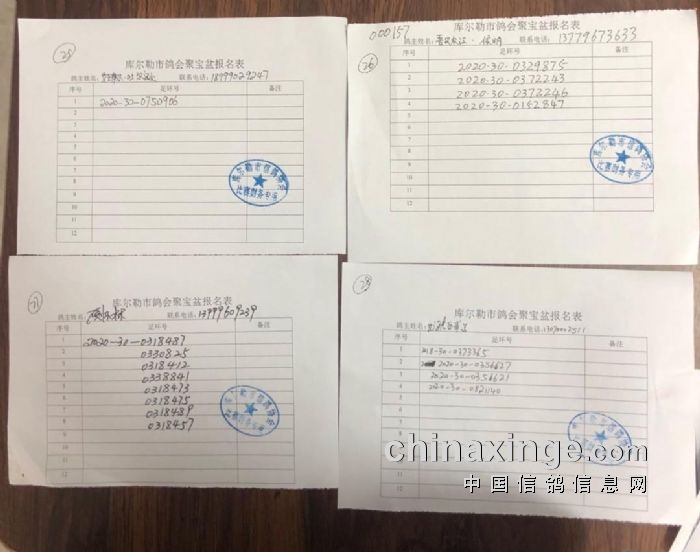 25
库尔勒市鸽会聚宝盆报名表
鸽主姓名: 联系电话: 18999029247
序号 足环号 备注
1 2020-30-0750906
2
3
4
5
6
7
8
9
10
11
12
库尔勒市信鸽协会
比赛财务专用
000157
26
库尔勒市鸽会聚宝盆报名表
鸽主姓名: 联系电话: 13779673633
序号 足环号 备注
1 2020-30-0329875
2 2020-30-0372243
3 2020-30-0372246
4 2020-30-0152847
5
6
7
8
9
10
11
12
库尔勒市信鸽协会
比赛财务专用
库尔勒市鸽会聚宝盆报名表
鸽主姓名: 联系电话: 13999609239
序号 足环号 备注
1 2020-30-0318487
2 0330825
3 0318412
4 0338841
5 0318473
6 0318475
7 0318489
8 0318457
9
10
11
12
28
库尔勒市鸽会聚宝盆报名表
鸽主姓名: 联系电话: 13070002511
序号 足环号 备注
1 2018-30-0373365
2 2020-30-0356627
3 2020-30-0356621
4 2020-30-0821140
5
6
7
8
9
10
11
12
chinaxinge.com
中国信鸽信息网